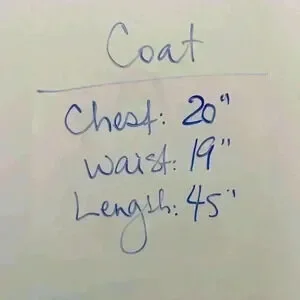 Coat
Chest: 20"
Waist: 19"
Length: 45"